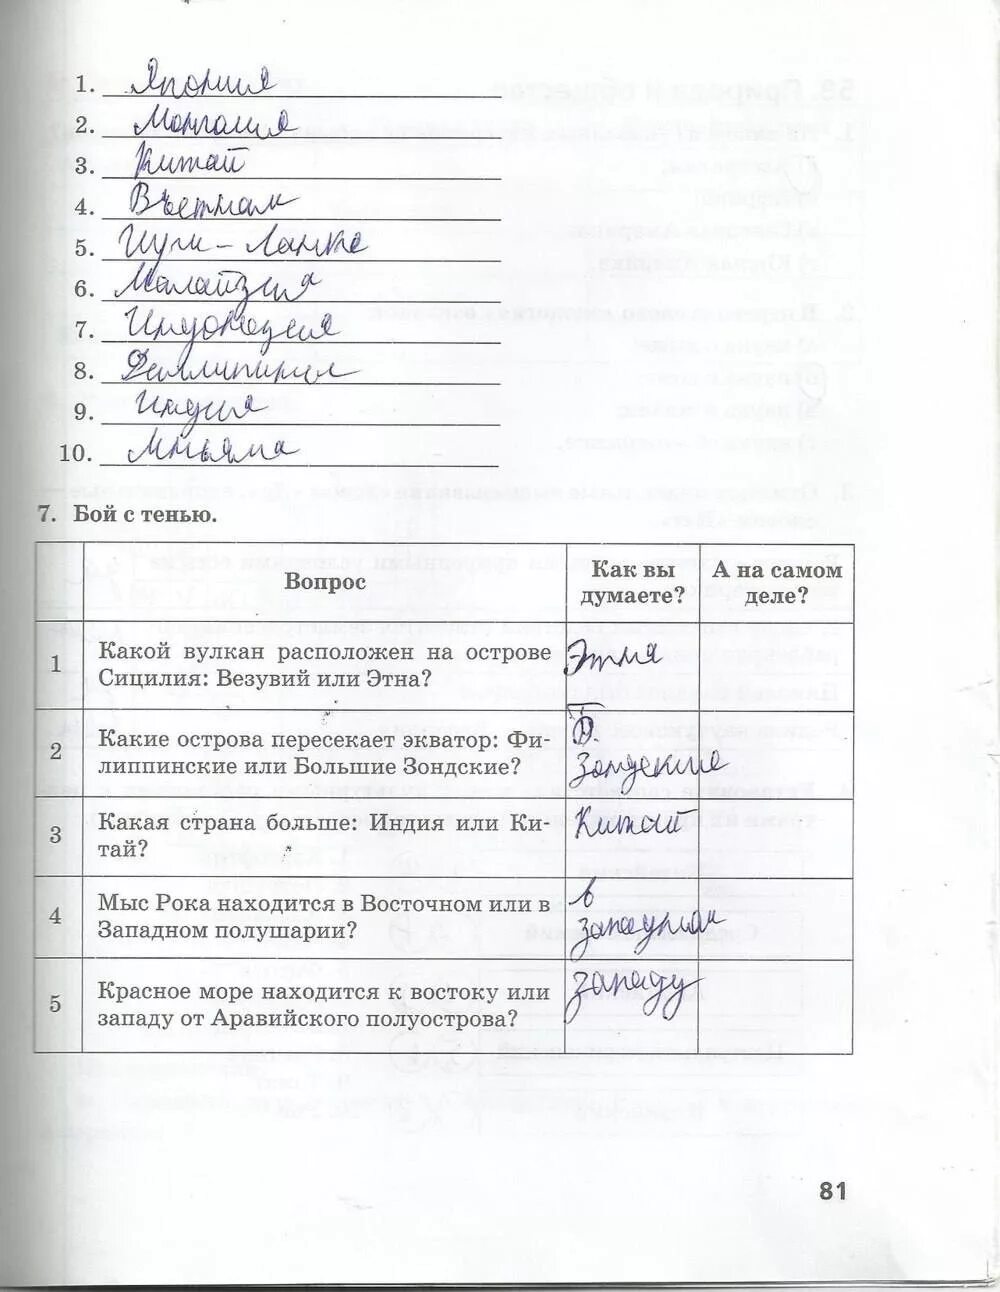 1. Япония
2. Монголия
3. Китай
4. Вьетнам
5. Шри-Ланка
6. Малайзия
7. Индонезия
8. Филиппины
9. Индия
10. Мьянма
7. Бой с тенью.
Вопрос
Как вы думаете?
А на самом деле?
1
Какой вулкан расположен на острове
Сицилия: Везувий или Этна?
Этна
2
Какие острова пересекает экватор: Фи-
липпинские или Большие Зондские?
Зондские
3
Какая страна больше: Индия или Ки-
тай?
Китай
4
Мыс Рока находится в Восточном или в
Западном полушарии?
в
западном
5
Красное море находится к востоку или
западу от Аравийского полуострова?
западу
81